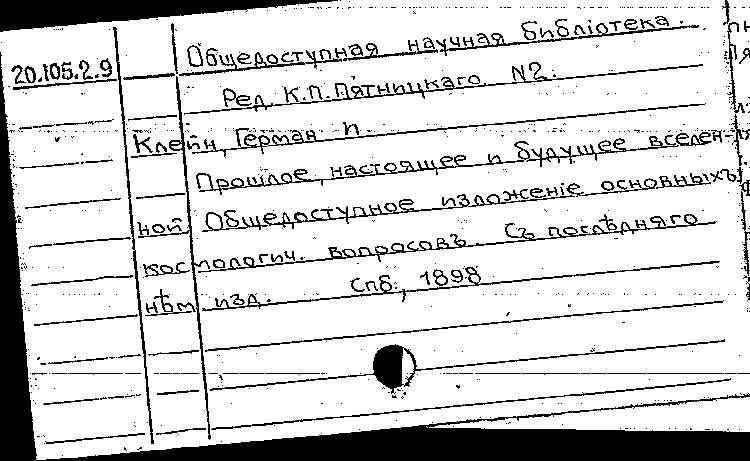 20.105.2.9 Общедоступная научная библіотека.
Ред. К.П.Пятницкаго N2.
Клейн, Герман И.
Прошлое, настоящее и будущее вселен-
ной. Общедоступное изложеніе основныхъ
космологич. вопросовъ. Съ послѣдняго
нѣм. изд. Спб., 1898